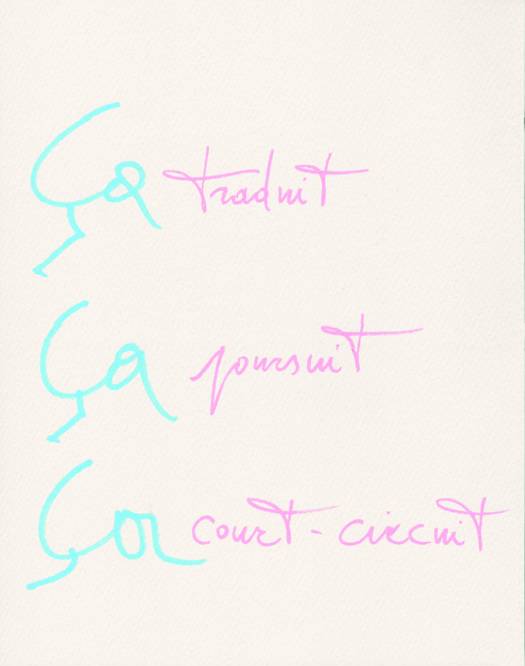 Ça traduit
Ça poursuit
Ça court-circuit